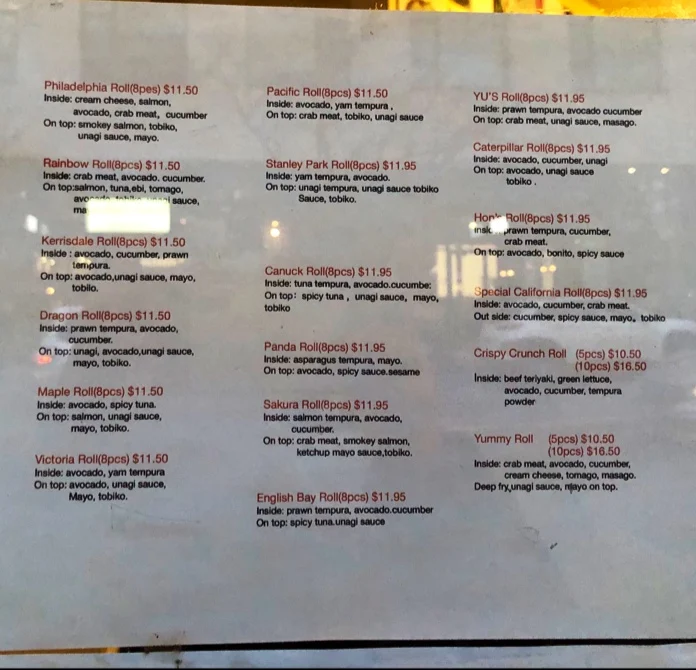 Philadelphia Roll(8pes) $11.50
Inside: cream cheese, salmon,
avocado, crab meat, cucumber
On top: smokey salmon, tobiko,
unagi sauce, mayo.
Rainbow Roll(8pcs) $11.50
Inside: crab meat, avocado. cucumber.
On top:salmon, tuna,ebi, tomago,
sauce,
Kerrisdale Roll(8pcs) $11.50
Inside : avocado, cucumber, prawn
tempura.
On top: avocado,unagi sauce, mayo,
tobiio.
Dragon Roll(8pcs) $11.50
Inside: prawn tempura, avocado,
cucumber.
On top: unagi, avocado,unagi sauce,
mayo, tobiko.
Maple Roll(8pcs) $11.50
Inside: avocado, spicy tuna.
On top: salmon, unagi sauce,
mayo, tobiko.
Victoria Roll(8pcs) $11.50
Inside: avocado, yam tempura
On top: avocado, unagi sauce,
Mayo, tobiko.
Pacific Roll(8pcs) $11.50
Inside: avocado, yam tempura ,
On top: crab meat, tobiko, unagi sauce
Stanley Park Roll(8pcs) $11.95
Inside: yam tempura, avocado.
On top: unagi tempura, unagi sauce tobiko
Sauce, tobiko.
Canuck Roll(8pcs) $11.95
Inside: tuna tempura, avocado.cucumbe:
On top: spicy tuna , unagi sauce, mayo,
tobiko
Panda Roll(8pcs) $11.95
Inside: asparagus tempura, mayo.
On top: avocado, spicy sauce.sesame
Sakura Roll(8pcs) $11.95
Inside: salmon tempura, avocado,
cucumber.
On top: crab meat, smokey salmon,
ketchup mayo sauce,tobiko.
English Bay Roll(8pcs) $11.95
Inside: prawn tempura, avocado.cucumber
On top: spicy tuna.unagi sauce
YU'S Roll(8pcs) $11.95
Inside: prawn tempura, avocado cucumber
On top: crab meat, unagi sauce, masago.
Caterpillar Roll(8pcs) $11.95
Inside: avocado, cucumber, unagi
On top: avocado, unagi sauce
tobiko .
Roll(8pcs) $11.95
prawn tempura, cucumber,
crab meat.
On top: avocado, bonito, spicy sauce
Special California Roll(8pcs) $11.95
Inside: avocado, cucumber, crab meat.
Out side: cucumber, spicy sauce, mayo, tobiko
Crispy Crunch Roll (5pcs) $10.50
(10pcs) $16.50
Inside: beef teriyaki, green lettuce,
avocado, cucumber, tempura
powder
Yummy Roll (5pcs) $10.50
(10pcs) $16.50
Inside: crab meat, avocado, cucumber,
cream cheese, tomago, masago.
Deep fry,unagi sauce, mayo on top.